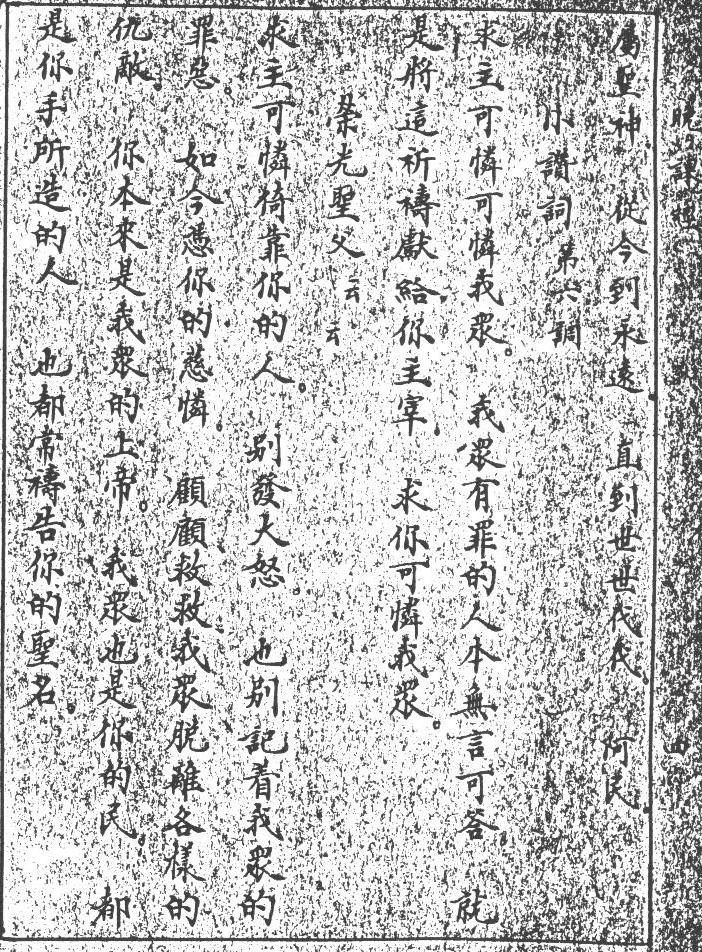 屬聖神 從今到永遠 直到世世代代。 阿民。
小讚詞 第六調
求主可憐可憐我眾。 我眾有罪的人本無言可答。 就
是將這祈禱獻給你主宰。 求你可憐我眾。
榮光聖父 云云
求主可憐猗靠你的人。 別發大怒。 也別記着我眾的
罪惡。 如今憑你的慈憐。 顧顧救救我眾脫離各樣的
仇敵。 你本來是我眾的上帝。 我眾也是你的民。 都
是你手所造的人 也都常禱告你的聖名。